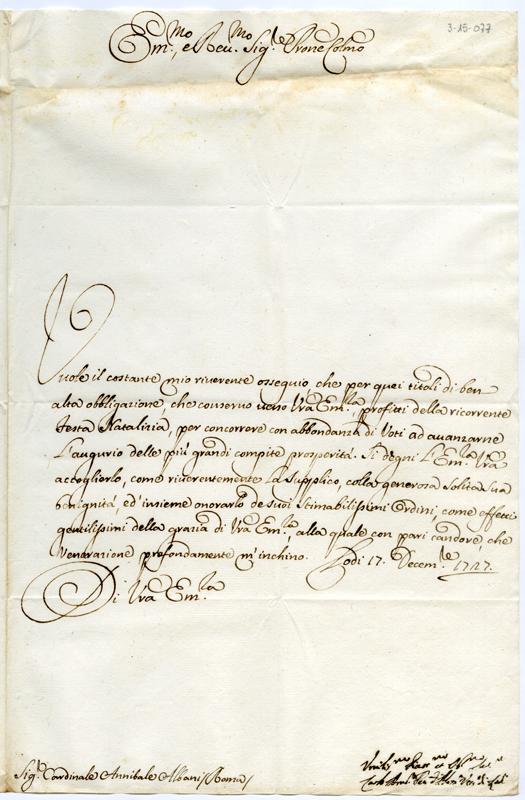 3-15-077
Em.mo, e Reu.mo Sig.e Prone Colmo
Vuole il costante mio riuerente ossequio, che per quei titoli di ben
alta obbligazione, che conseruo uerso Vrã Em.za, profitti della ricorrente
festa Natalizia, per concorrere con abbondanza di Voti ad auanzarne
l'augurio delle più grandi compite prosperità. Si degni l'Em.za Vrã
accoglierlo, come riuerentemente la supplico, colla generosa solita sua
benignità, ed insieme onorarlo de suoi stimabilissimi Ordini, come effetti
gentilissimi della grazia di Vrã Em.za, alla quale con pari candore, che
Venerazione profondamente m'inchino. Lodi 17. Decem.e 1727.
Di Vrã Em.za
Sig.r Cardinale Annibale Albani /Roma/